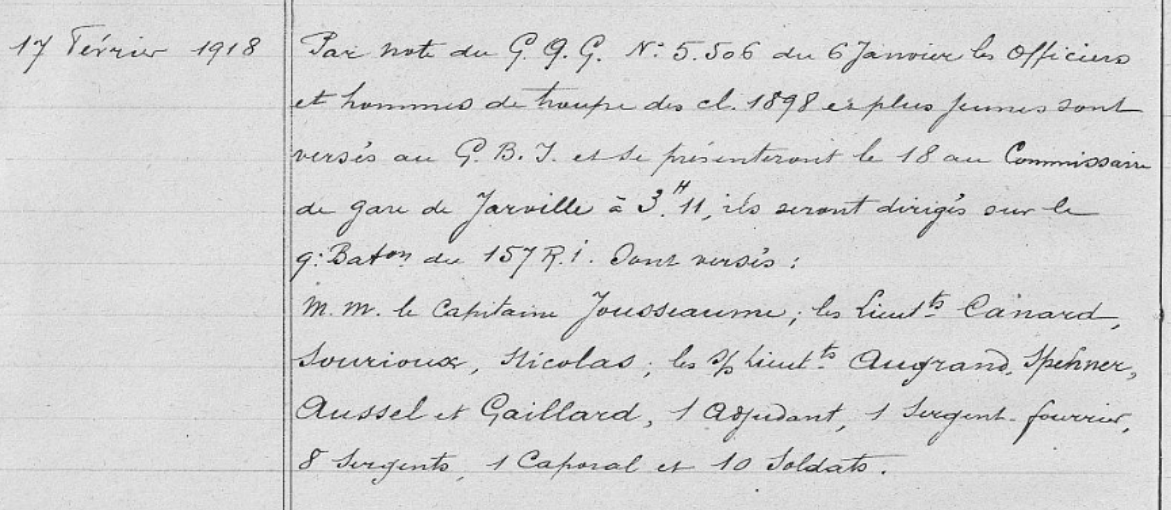 17 Février 1918
Par note du G.Q.G. N° 5.506 du 6 Janvier les Officiers
et hommes de troupe des cl. 1898 et plus jeunes sont
versés au G.B.I. et se présenteront le 18 au Commissaire
de gare de Jarville à 3.H 11, ils seront dirigés sur le
9: Baton du 157 R.i. Sont versés :
M.M. le Capitaine Jousseaume ; les Lieutts Canard,
Sourioux, Nicolas ; les S/ Lieutts Augrand, Spehner,
Aussel et Gaillard, 1 Adjudant, 1 Sergent-fourrier,
8 Sergents, 1 Caporal et 10 Soldats.